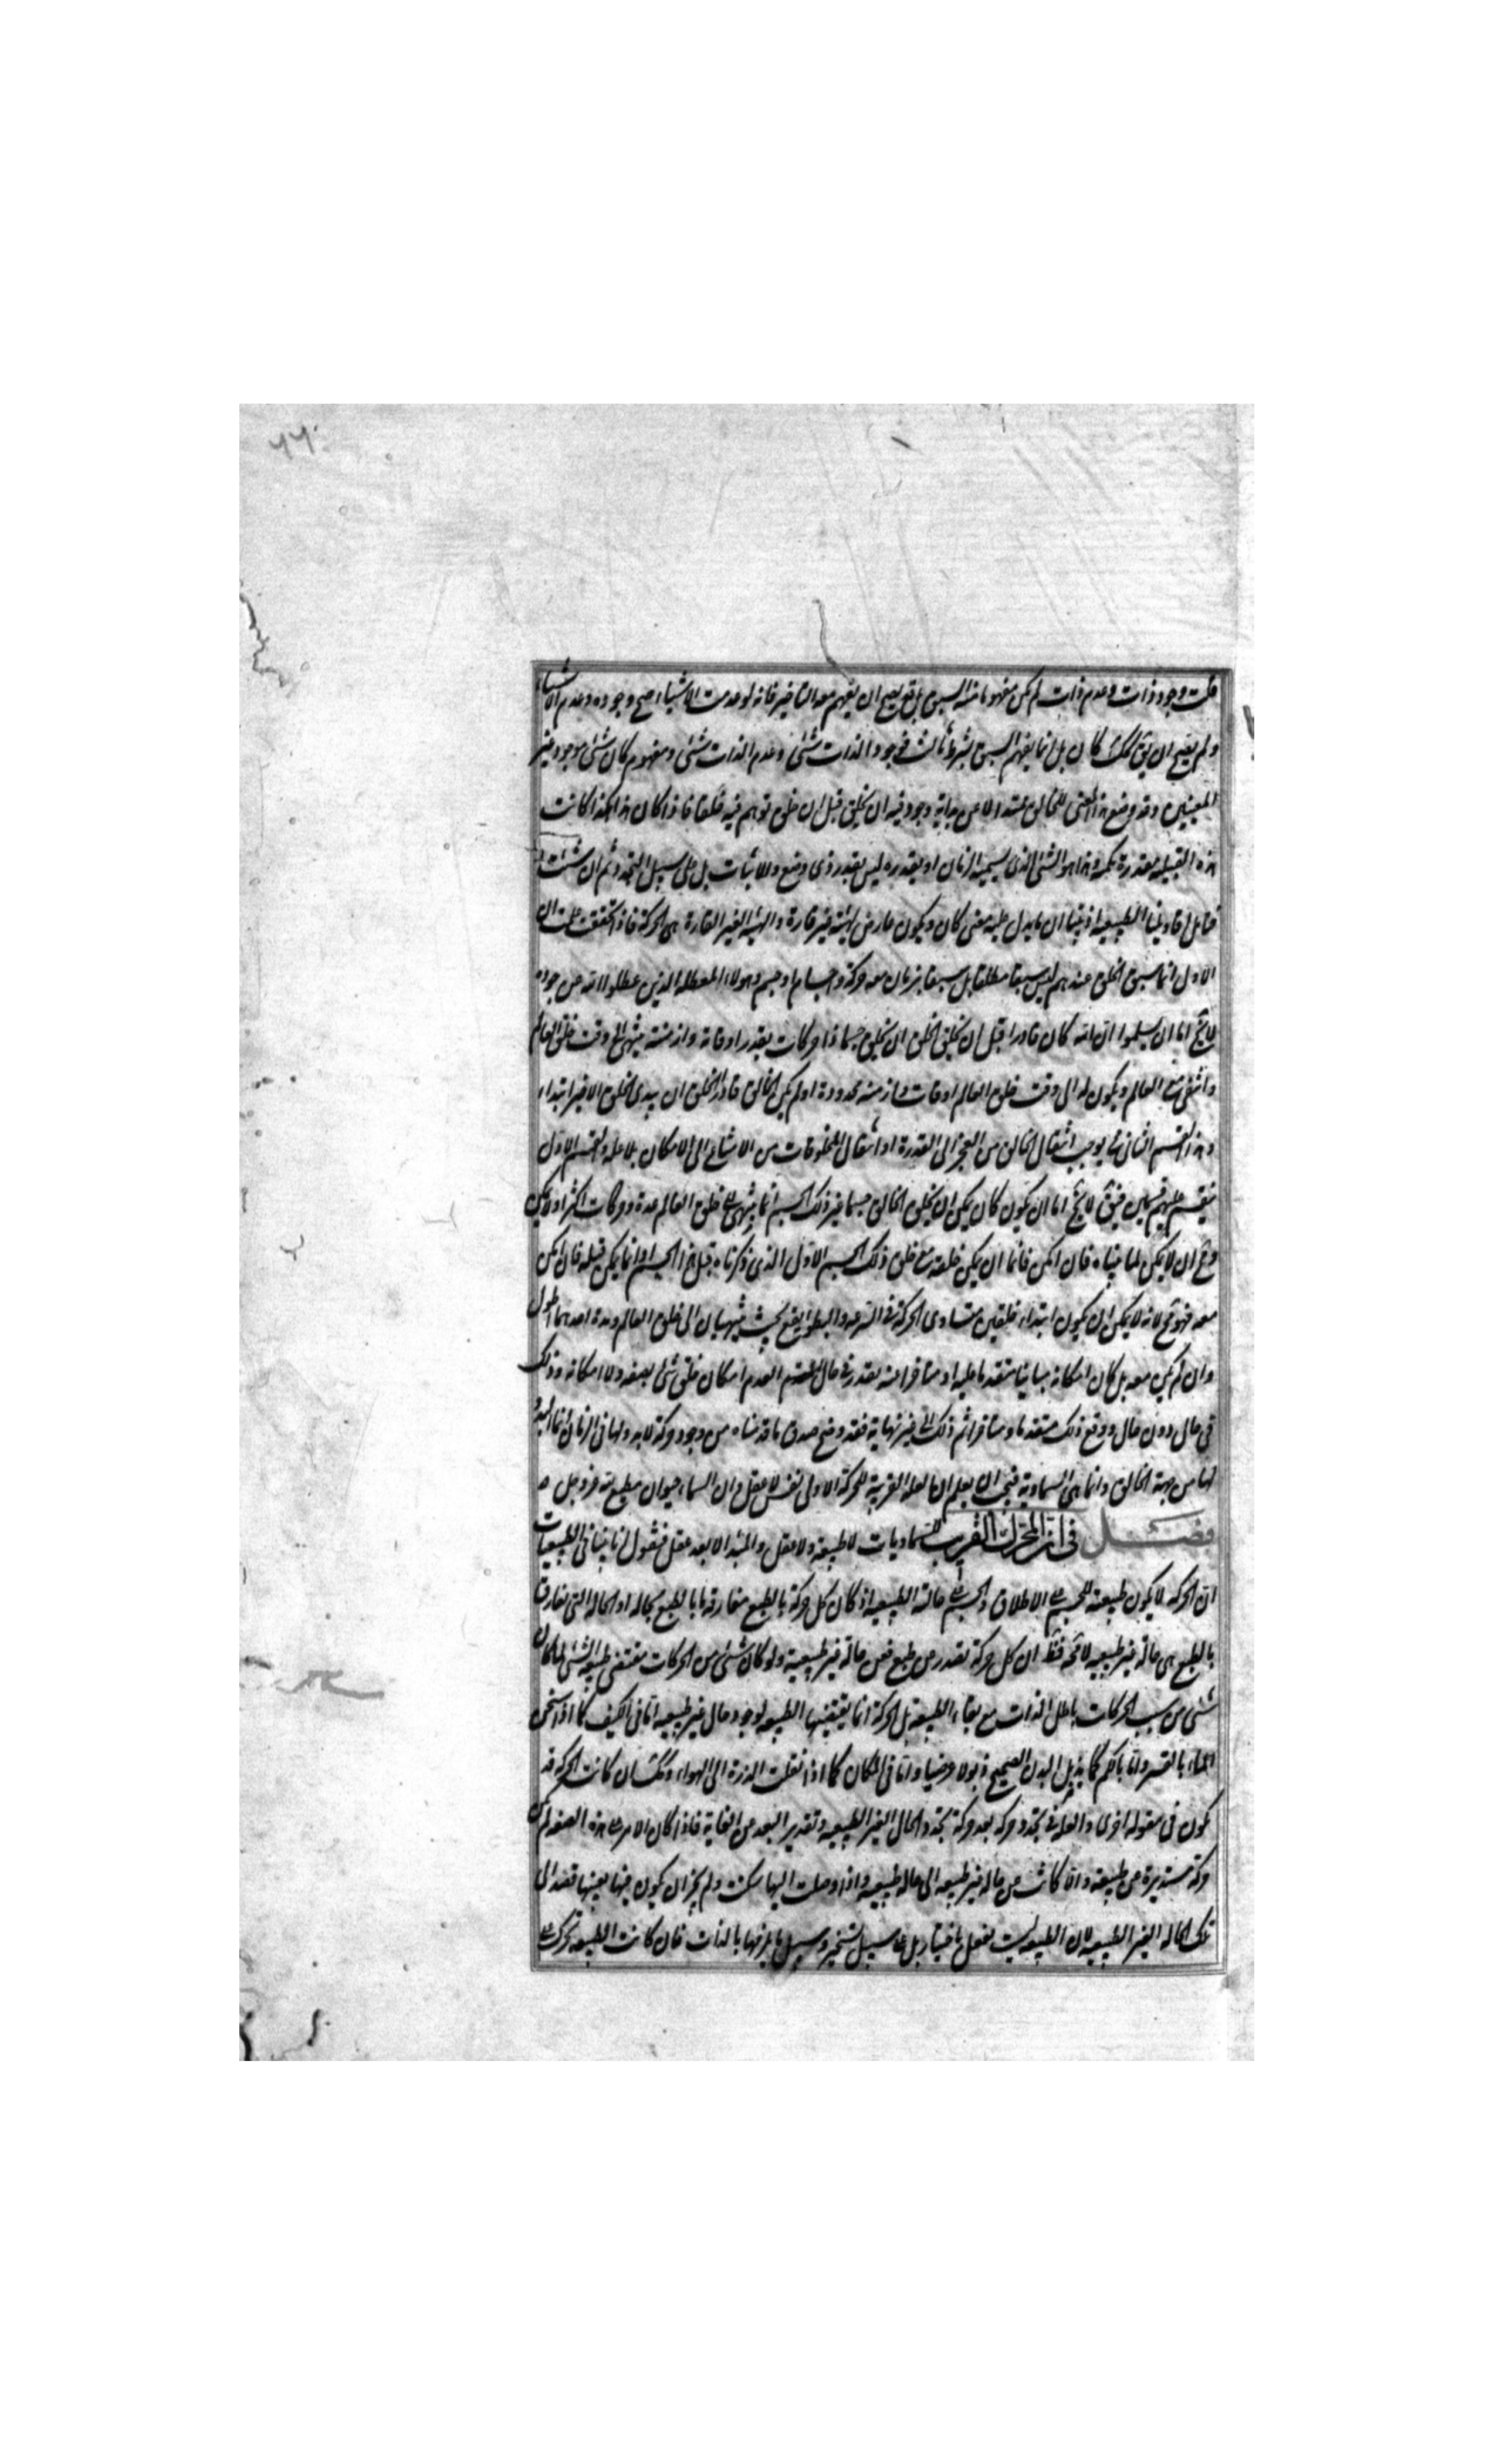 قلت وجود ذات وعدم ذات لم يكن مفهوما منه السبق بل قد يصح ان يفهم معه التأخير فانه لو عدمت الاشياء صح وجوده وعدم الاشياء
ولم يصح ان يق كان بل انما يفهم السبق بشرط ثالث فوجود الذات شئ وعدم الذات شئ ومفهوم كان شئ موجود غير
المعنيين وقد وضع هذا المعنى للخالق ممتدا لا عن بداية وجوز فيه ان يخلق قبل ان خلق توهم فيه خلقا فاذا كان هذا هكذا كانت
هذه القبلية مقدرة مكممة وهذا هو الشئ الذى نسميه الزمان اذ تقديره ليس تقدير ذى وضع ولا ثبات بل على سبيل التجدد ثم ان شئت
فتأمل اقاويلنا الطبيعية اذ بينا ان ما يدل عليه معنى كان ويكون عارض لهيئة غير قارة والهيئة الغير القارة هى الحركة فاذا تحققت علمت ان
الاول انما سبق الخلق عندهم ليس سبقا مطلقا بل سبقا بزمان معه حركة واجسام او جسم وهولاء المعطلة الذين عطلوا الله عن جوده
لا يخ اما ان يسلموا ان الله كان قادرا قبل ان يخلق الخلق ان يخلق جسما ذا حركات بقدر اوقاته وازمنته ينتهى الى وقت خلق العالم
العالم ويكون له الى وقت خلق العالم اوقات وازمنة محدودة او لم يكن الخالق قادر الخلق ان يبدى الخلق الاخر ابتداء
وهذا القسم الثانى مح يوجب انتقال الخالق من العجز الى القدرة او انتقال المخلوقات من الامتناع الى الامكان بلا علة والقسم الاول
ينقسم عليهم قسمين فيق لا يخ اما ان يكون كان يمكن ان يخلق الخالق جسما غير ذلك الجسم انما ينتهى الى خلق العالم بمدة وحركات اكثر او لا يمكن
ومح ان لا يمكن لما بيناه فان امكن فاما ان يمكن خلقه مع خلق ذلك الجسم الاول الذى ذكرناه قبل هذا الجسم او انما يمكن قبله فان امكن
معه فهو مح لانه لا يمكن ان يكون ابتداء خلقين متساوى الحركة فى السرعة والبطؤ يقع بحيث ينتهيان الى خلق العالم ومدة احدهما اطول
وان لم يمكن معه بل كان امكانه مباينا متقدما عليه او متاخرا عنه يقدر فى حال العدم امكان خلق شئ بصفة ولا امكانه وذلك
فى حال دون حال ووقع ذلك متقدما ومتاخرا ثم ذلك الى غير نهاية فقد وضح صدق ما قدمناه من وجود حركة لا بدء لها فى الزمان انما البدء
لها من جهة الخالق وانما هى السماوية فيجب ان يعلم ان العلة القريبة للحركة الاولى نفس لا عقل وان السماء حيوان مطيع لله عز وجل
فصل فى ان المحرك القريب للسماويات لا طبيعة ولا عقل والمبدا الابعد عقل فنقول انا بينا فى الطبيعيات
ان الحركة لا يكون طبيعته للجسم على الاطلاق والجسم على حالته الطبيعية اذ كان كل حركة بالطبع مفارقة ما بالطبع بحاله او الحالة التى تفارق
بالطبع هى حالة غير طبيعية لا محة فظ ان كل حركة تصدر عن طبع فعن حالة غير طبيعية ولو كان شئ من الحركات مقتضى طبيعة الشئ لما كان
شئ من نسب الحركات باطل الذات مع بقاء الطبيعة بل الحركة انما يقتضيها الطبيعة لوجود حال غير طبيعية اما فى الكيف كما اذا سخن
الماء بالقسر واما بالكم كما يذبل البدن الصحيح ذبولا مرضيا واما فى المكان كما اذا نقلت المدرة الى الهواء وكذلك ان كانت الحركة قد
تكون فى مقولة اخرى والعلة فى تجدد حركة بعد حركة تجدد الحال الغير الطبيعية وتقدير البعد عن الغاية فاذا كان الامر على هذه الصفة لم يكن
حركة مستديرة عن طبيعة والا كانت عن حالة غير طبيعية الى حالة طبيعية واذا وصلت اليها سكنت ولم يجز ان يكون فيها بعينها قصد الى
تلك الحالة الغير الطبيعية لان الطبيعة ليست تفعل باختيار بل على سبيل تسخير وسبيل ما يلزمها بالذات فان كانت الطبيعة تحرك على